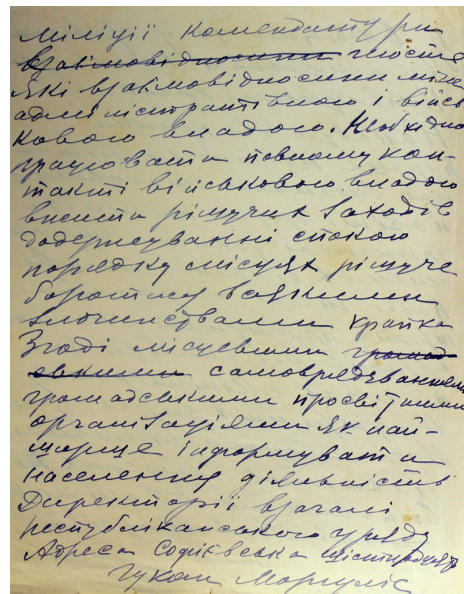 міліції комендатури
взаємовідносини гостре
які взаємовідносини між
адміністративною і війсь
ковою владою. Необхідно
працювати повному кон-
такті військовою владою
вжити рішучих заходів
додержуванні спокою
порядку місцях рішуче
боротися всякими
злочинствами крапка
Згоді місцевими громад
ськими самоврядуваннями
громадськими просвітними
організаціями як най-
ширше інформувати
населення діяльність
Директорії взагалі
республіканського уряду
Адреса Софієвська
Марголіс